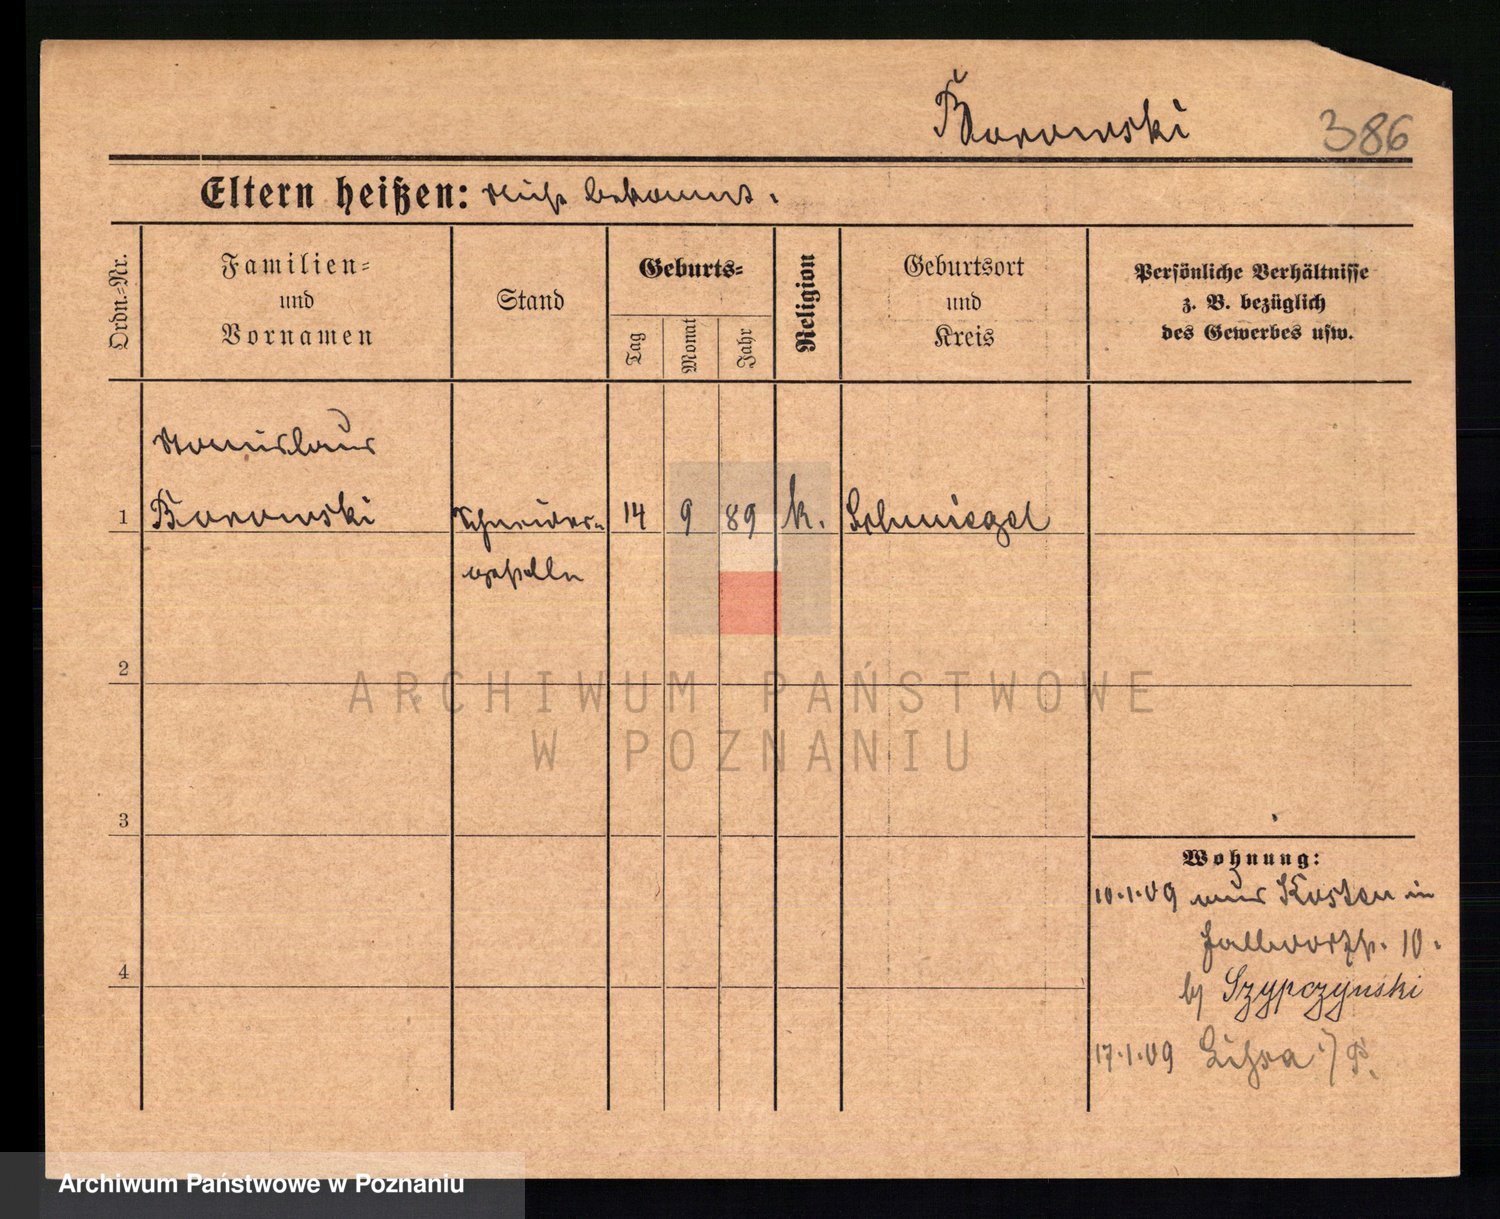 Borowski
386
Eltern heißen: nicht bekannt.
Ordn.-Nr.
Familien-
und
Vornamen
Stand
Geburts-
Tag
Monat
Jahr
Religion
Geburtsort
und
Kreis
Persönliche Verhältnisse
z. B. bezüglich
des Gewerbes usw.
Stanislaus
1 Borowski Schneider- 14 9 89 k. Schmiegel
geselle
2
3
4
Wohnung:
10.1.09 aus Kosten in
10.
bj Szypczynski
17.1.09 i/P.
ARCHIWUM PAŃSTWOWE
W POZNANIU
Archiwum Państwowe w Poznaniu